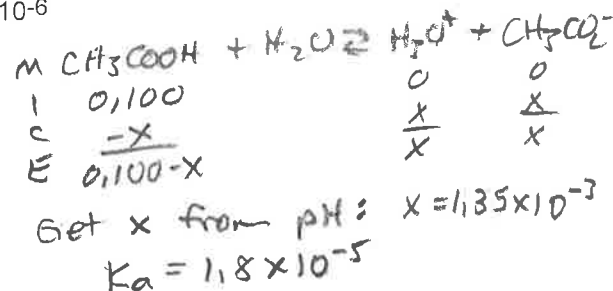 10-6
M CH3COOH + H2O ⇌ H3O+ + CH3CO2-
I 0,100 0 0
C -x x x
E 0,100-x x x
Get x from pH: x = 1,35 x 10^-3
Ka = 1,8 x 10^-5